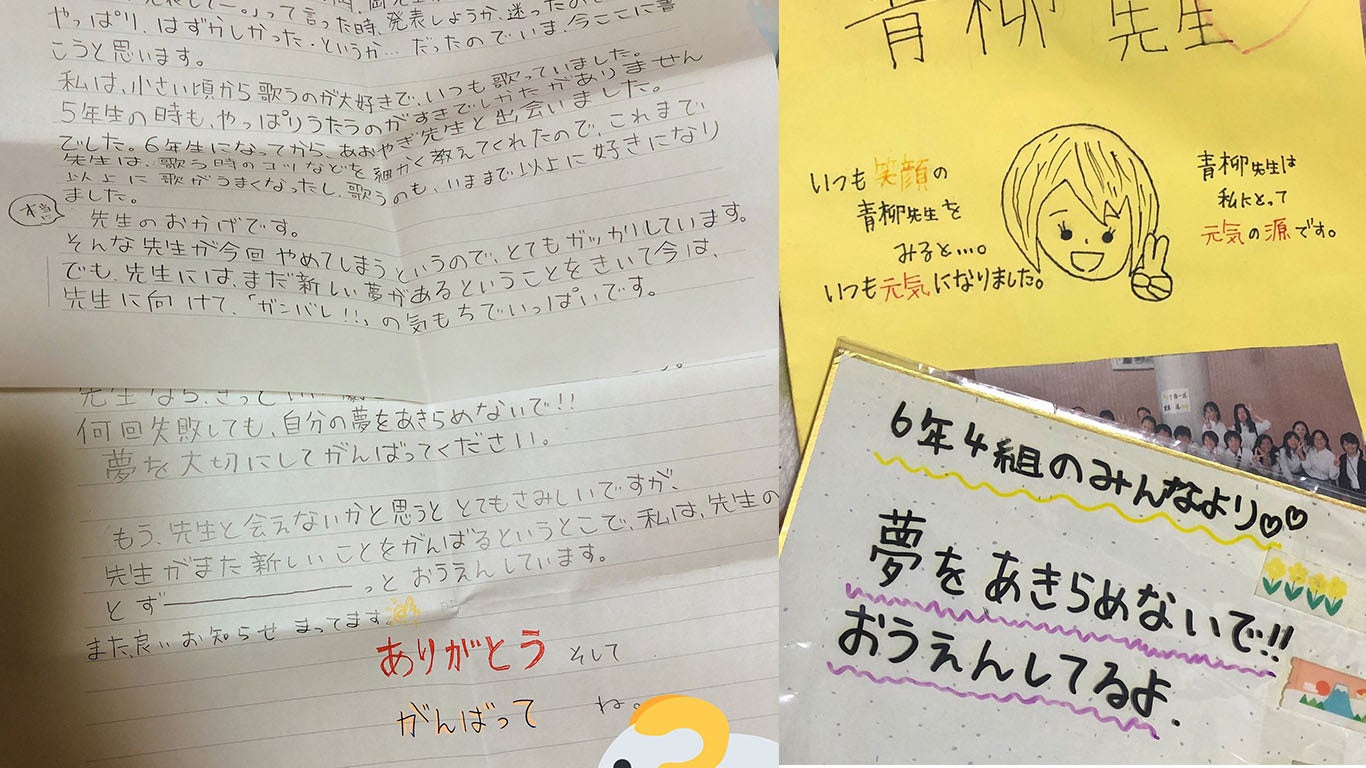 って言った時、発表しようか、迷った
やっぱり、はずかしかった・というか…だったのでいま、今ここに書
こうと思います。
私は、小さい頃から歌うのが大好きで、いつも歌っていました。
5年生の時も、やっぱりうたうのがすきでしかたがありません
でした。6年生になってから、あおやぎ先生と出会いました。
先生は、歌う時のコツなどを細かく教えてくれたので、これまで
以上に歌がうまくなったし、歌うのも、いままで以上に好きになり
ました。
本当
先生のおかげです。
そんな先生が今回やめてしまうというので、とてもガッカリしています。
でも、先生には、まだ新しい夢があるということをきいて今は、
先生に向けて、「ガンバレ!!」の気もちでいっぱいです。
先生なら、きっと
何回失敗しても、自分の夢をあきらめないで!!
夢を大切にしてがんばってください。
もう、先生と会えないかと思うととてもさみしいですが、
先生がまた新しいことをがんばるというとこで、私は、先生の
とずーっとおうえんしています。
また、良いお知らせまってます。
ありがとう そして
がんばって ね。
青柳先生
いつも笑顔の
青柳先生を
みると…。
いつも元気になりました。
青柳先生は
私にとって
元気の源です。
6年4組のみんなより♡♡
夢をあきらめないで!!
おうえんしてるよ.